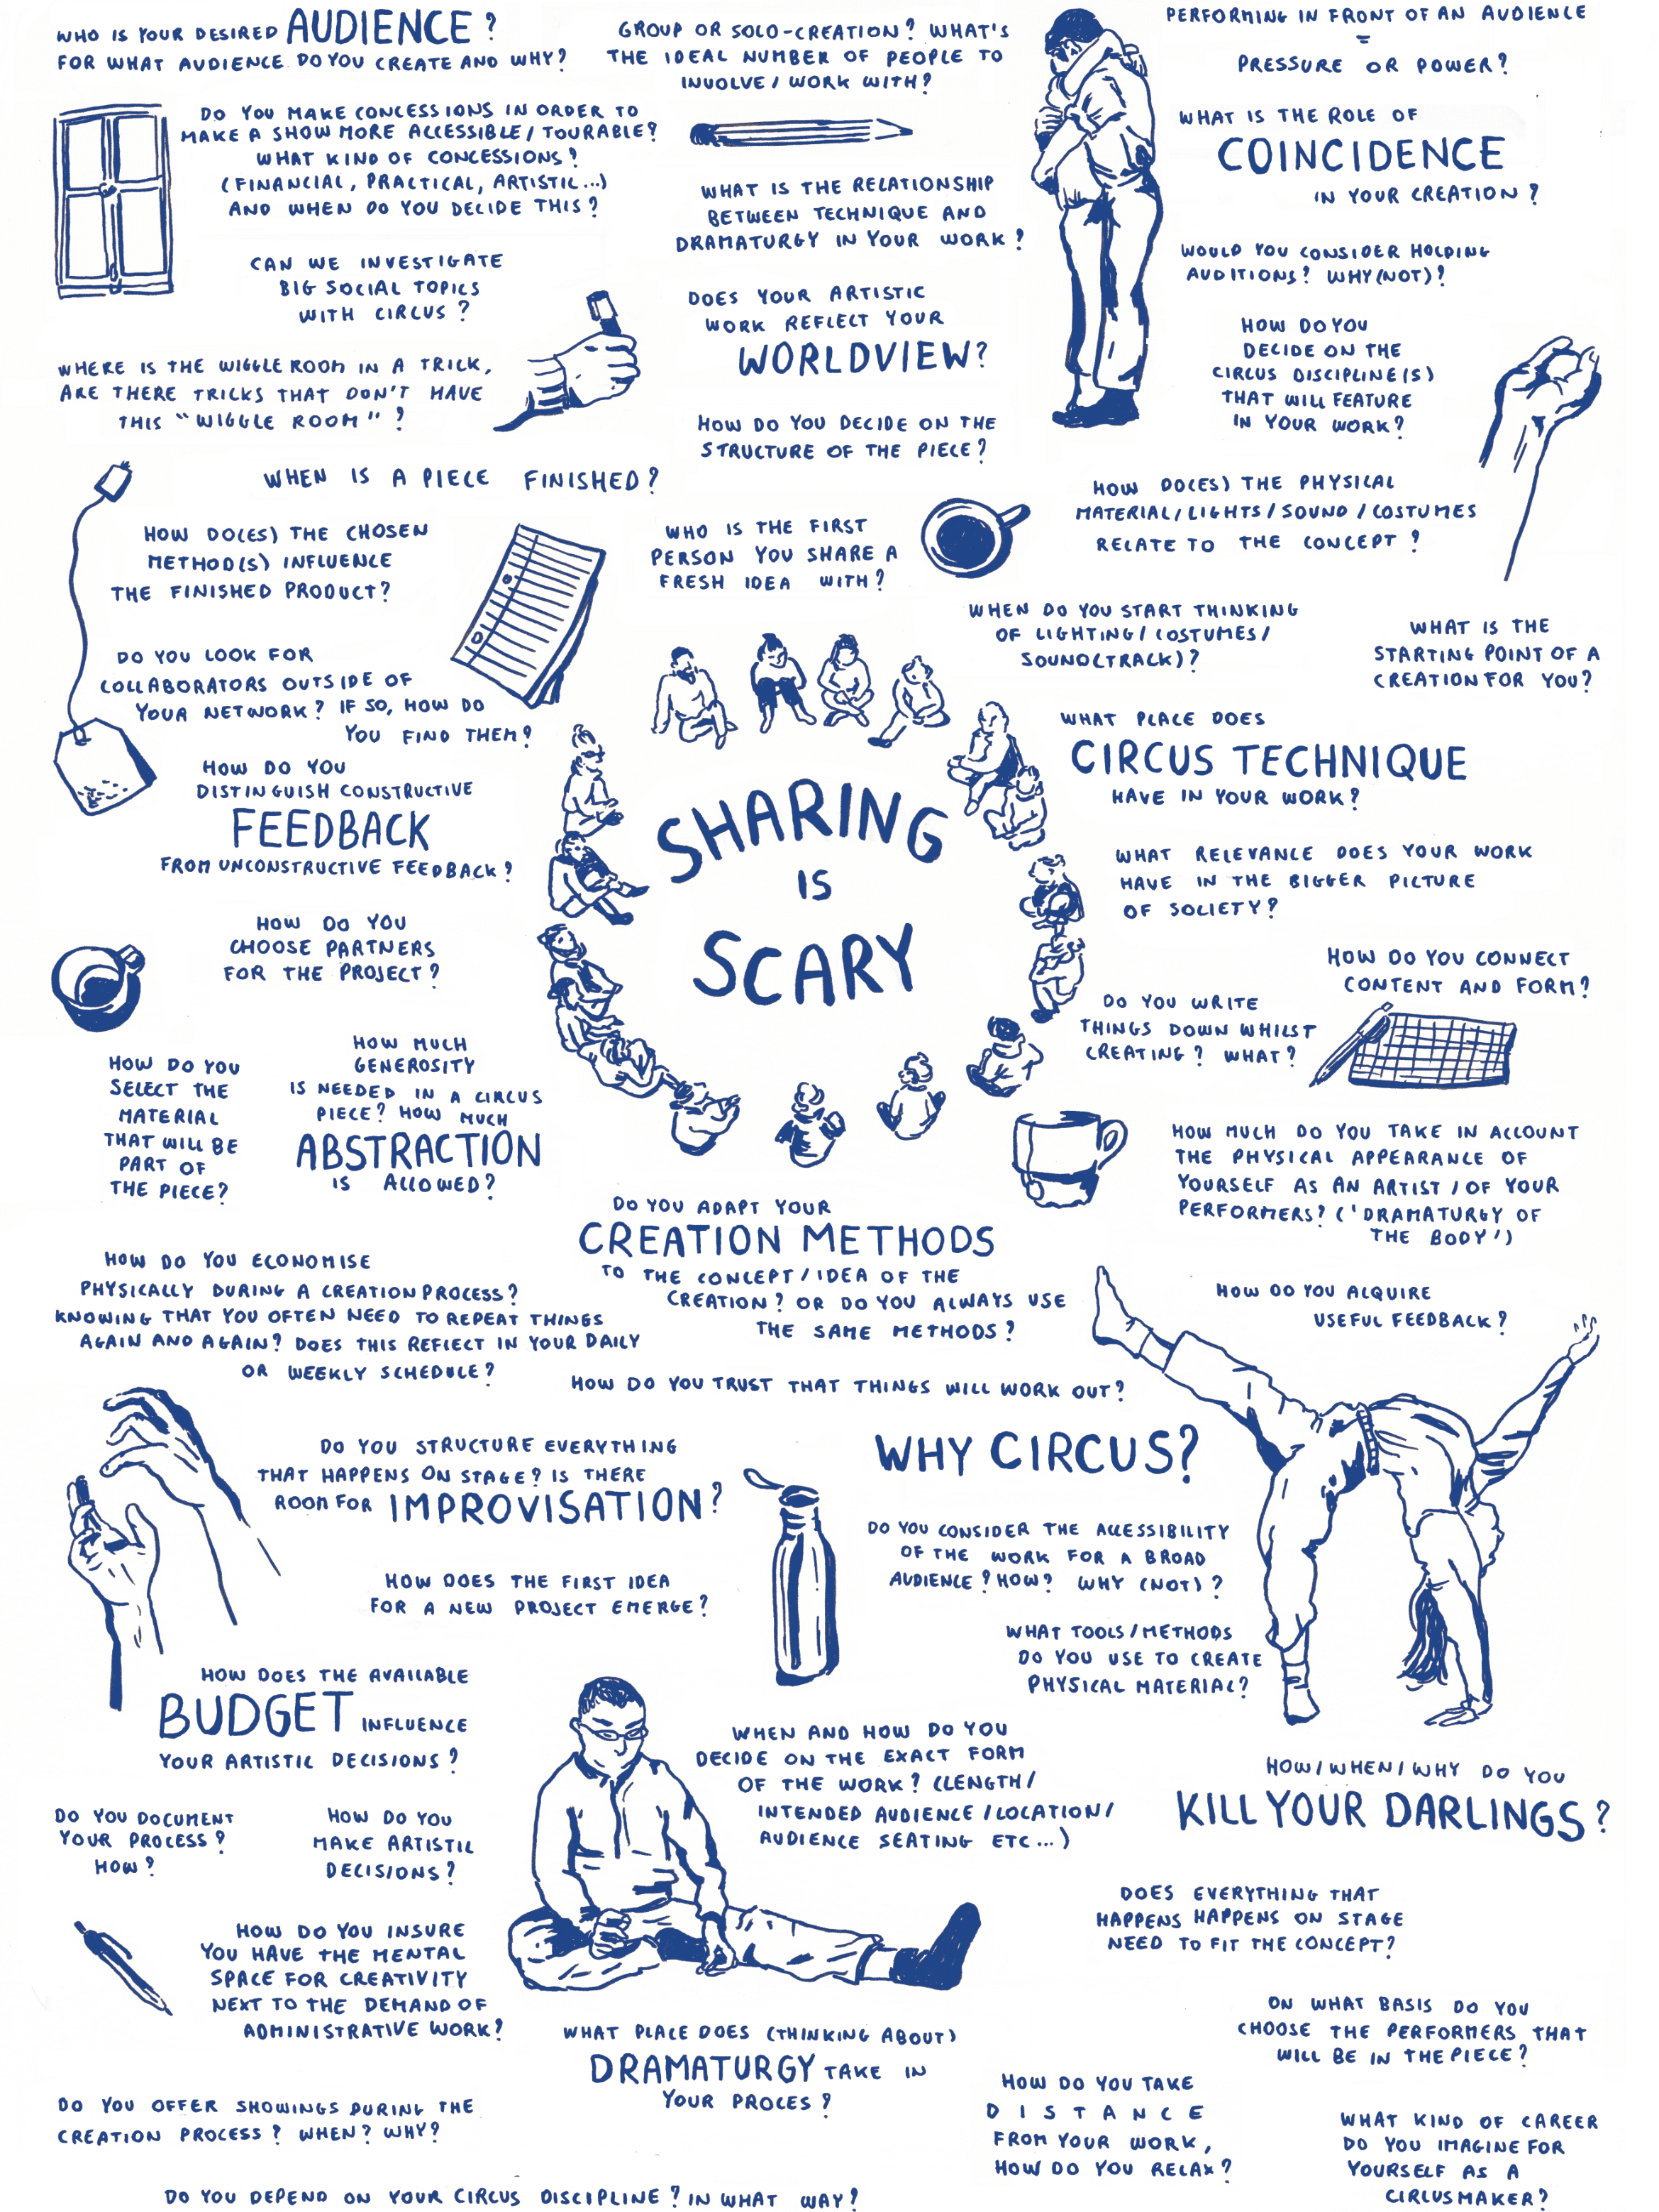 WHO IS YOUR DESIRED AUDIENCE?
FOR WHAT AUDIENCE DO YOU CREATE AND WHY?
GROUP OR SOLO-CREATION? WHAT'S
THE IDEAL NUMBER OF PEOPLE TO
INVOLVE / WORK WITH?
PERFORMING IN FRONT OF AN AUDIENCE
=
PRESSURE OR POWER?
DO YOU MAKE CONCESSIONS IN ORDER TO
MAKE A SHOW MORE ACCESSIBLE / TOURABLE?
WHAT KIND OF CONCESSIONS?
(FINANCIAL, PRACTICAL, ARTISTIC...)
AND WHEN DO YOU DECIDE THIS?
WHAT IS THE ROLE OF
COINCIDENCE
IN YOUR CREATION?
WHAT IS THE RELATIONSHIP
BETWEEN TECHNIQUE AND
DRAMATURGY IN YOUR WORK?
CAN WE INVESTIGATE
BIG SOCIAL TOPICS
WITH CIRCUS?
WOULD YOU CONSIDER HOLDING
AUDITIONS? WHY (NOT)?
DOES YOUR ARTISTIC
WORK REFLECT YOUR
WORLDVIEW?
HOW DO YOU
DECIDE ON THE
CIRCUS DISCIPLINE(S)
THAT WILL FEATURE
IN YOUR WORK?
WHERE IS THE WIGGLE ROOM IN A TRICK,
ARE THERE TRICKS THAT DON'T HAVE
THIS "WIGGLE ROOM"?
HOW DO YOU DECIDE ON THE
STRUCTURE OF THE PIECE?
WHEN IS A PIECE FINISHED?
HOW DO(ES) THE PHYSICAL
MATERIAL / LIGHTS / SOUND / COSTUMES
RELATE TO THE CONCEPT?
HOW DO(ES) THE CHOSEN
METHOD(S) INFLUENCE
THE FINISHED PRODUCT?
WHO IS THE FIRST
PERSON YOU SHARE A
FRESH IDEA WITH?
WHEN DO YOU START THINKING
OF LIGHTING / COSTUMES /
SOUND(TRACK)?
WHAT IS THE
STARTING POINT OF A
CREATION FOR YOU?
DO YOU LOOK FOR
COLLABORATORS OUTSIDE OF
YOUR NETWORK? IF SO, HOW DO
YOU FIND THEM?
WHAT PLACE DOES
CIRCUS TECHNIQUE
HAVE IN YOUR WORK?
HOW DO YOU
DISTINGUISH CONSTRUCTIVE
FEEDBACK
FROM UNCONSTRUCTIVE FEEDBACK?
SHARING
IS
SCARY
WHAT RELEVANCE DOES YOUR WORK
HAVE IN THE BIGGER PICTURE
OF SOCIETY?
HOW DO YOU
CHOOSE PARTNERS
FOR THE PROJECT?
HOW DO YOU CONNECT
CONTENT AND FORM?
DO YOU WRITE
THINGS DOWN WHILST
CREATING? WHAT?
HOW DO YOU
SELECT THE
MATERIAL
THAT WILL BE
PART OF
THE PIECE?
HOW MUCH
GENEROSITY
IS NEEDED IN A CIRCUS
PIECE? HOW MUCH
ABSTRACTION
IS ALLOWED?
HOW MUCH DO YOU TAKE IN ACCOUNT
THE PHYSICAL APPEARANCE OF
YOURSELF AS AN ARTIST / OF YOUR
PERFORMERS? ('DRAMATURGY OF
THE BODY')
DO YOU ADAPT YOUR
CREATION METHODS
TO THE CONCEPT / IDEA OF THE
CREATION? OR DO YOU ALWAYS USE
THE SAME METHODS?
HOW DO YOU ECONOMISE
PHYSICALLY DURING A CREATION PROCESS?
KNOWING THAT YOU OFTEN NEED TO REPEAT THINGS
AGAIN AND AGAIN? DOES THIS REFLECT IN YOUR DAILY
OR WEEKLY SCHEDULE?
HOW DO YOU ACQUIRE
USEFUL FEEDBACK?
HOW DO YOU TRUST THAT THINGS WILL WORK OUT?
DO YOU STRUCTURE EVERYTHING
THAT HAPPENS ON STAGE? IS THERE
ROOM FOR IMPROVISATION?
WHY CIRCUS?
DO YOU CONSIDER THE ACCESSIBILITY
OF THE WORK FOR A BROAD
AUDIENCE? HOW? WHY (NOT)?
HOW DOES THE FIRST IDEA
FOR A NEW PROJECT EMERGE?
WHAT TOOLS / METHODS
DO YOU USE TO CREATE
PHYSICAL MATERIAL?
HOW DOES THE AVAILABLE
BUDGET INFLUENCE
YOUR ARTISTIC DECISIONS?
WHEN AND HOW DO YOU
DECIDE ON THE EXACT FORM
OF THE WORK? (LENGTH /
INTENDED AUDIENCE / LOCATION /
AUDIENCE SEATING ETC...)
HOW / WHEN / WHY DO YOU
KILL YOUR DARLINGS?
DO YOU DOCUMENT
YOUR PROCESS?
HOW?
HOW DO YOU
MAKE ARTISTIC
DECISIONS?
DOES EVERYTHING THAT
HAPPENS HAPPENS ON STAGE
NEED TO FIT THE CONCEPT?
HOW DO YOU INSURE
YOU HAVE THE MENTAL
SPACE FOR CREATIVITY
NEXT TO THE DEMAND OF
ADMINISTRATIVE WORK?
ON WHAT BASIS DO YOU
CHOOSE THE PERFORMERS THAT
WILL BE IN THE PIECE?
WHAT PLACE DOES (THINKING ABOUT)
DRAMATURGY TAKE IN
YOUR PROCES?
HOW DO YOU TAKE
DISTANCE
FROM YOUR WORK,
HOW DO YOU RELAX?
DO YOU OFFER SHOWINGS DURING THE
CREATION PROCESS? WHEN? WHY?
WHAT KIND OF CAREER
DO YOU IMAGINE FOR
YOURSELF AS A
CIRCUSMAKER?
DO YOU DEPEND ON YOUR CIRCUS DISCIPLINE? IN WHAT WAY?